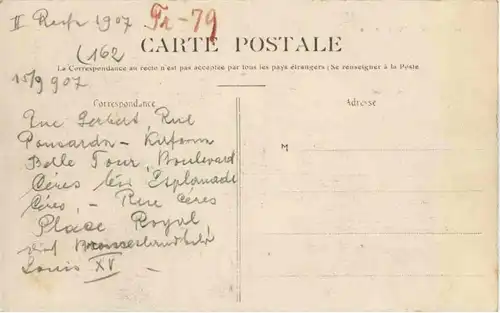 II Reise 1907 Fr-79
(162
CARTE POSTALE
La Correspondance au recto n'est pas acceptée par tous les pays étrangers (Se renseigner à la Poste
15/9 907
Correspondance
Adresse
M
Rue Gerbert Rue
Ponsardin -
Belle Tour, Boulevard
Céres Esplanade
Céres, - Rue Céres
Place Royal
Louis XV